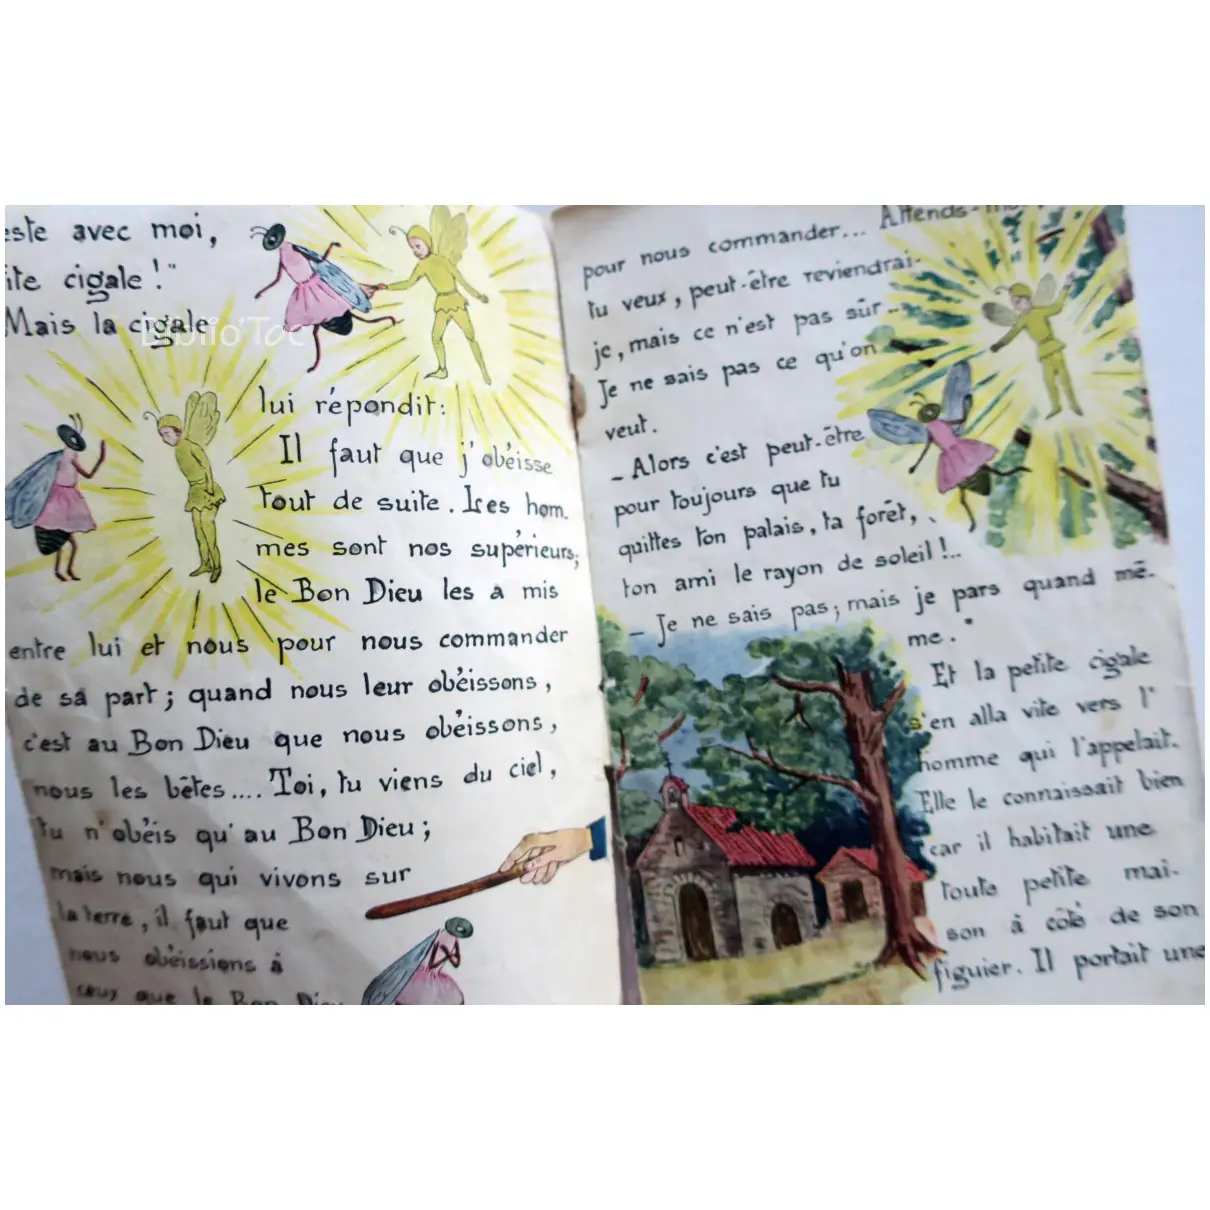 este avec moi,
ite cigale!"
Mais la cigale
Biblio'Toc
lui répondit:
Il faut que j'obéisse
tout de suite. Les hom.
mes sont nos supérieurs;
le Bon Dieu les a mis
entre lui et nous pour nous commander
de sa part; quand nous leur obéissons,
c'est au Bon Dieu que nous obéissons,
nous les bêtes.... Toi, tu viens du ciel,
tu n'obéis qu'au Bon Dieu;
mais nous qui vivons sur
la terre, il faut que
nous obéissions à
ceux que le Bon Dieu
pour nous commander... Attends-moi
tu veux, peut-être reviendrai-
je, mais ce n'est pas sûr..
Je ne sais pas ce qu'on
veut.
- Alors c'est peut-être
pour toujours que tu
quittes ton palais, ta forêt,
ton ami le rayon de soleil!..
- Je ne sais pas; mais je pars quand mê-
me."
Et la petite cigale
s'en alla vite vers l'
homme qui l'appelait.
Elle le connaissait bien
car il habitait une
toute petite mai-
son à côté de son
figuier. Il portait une